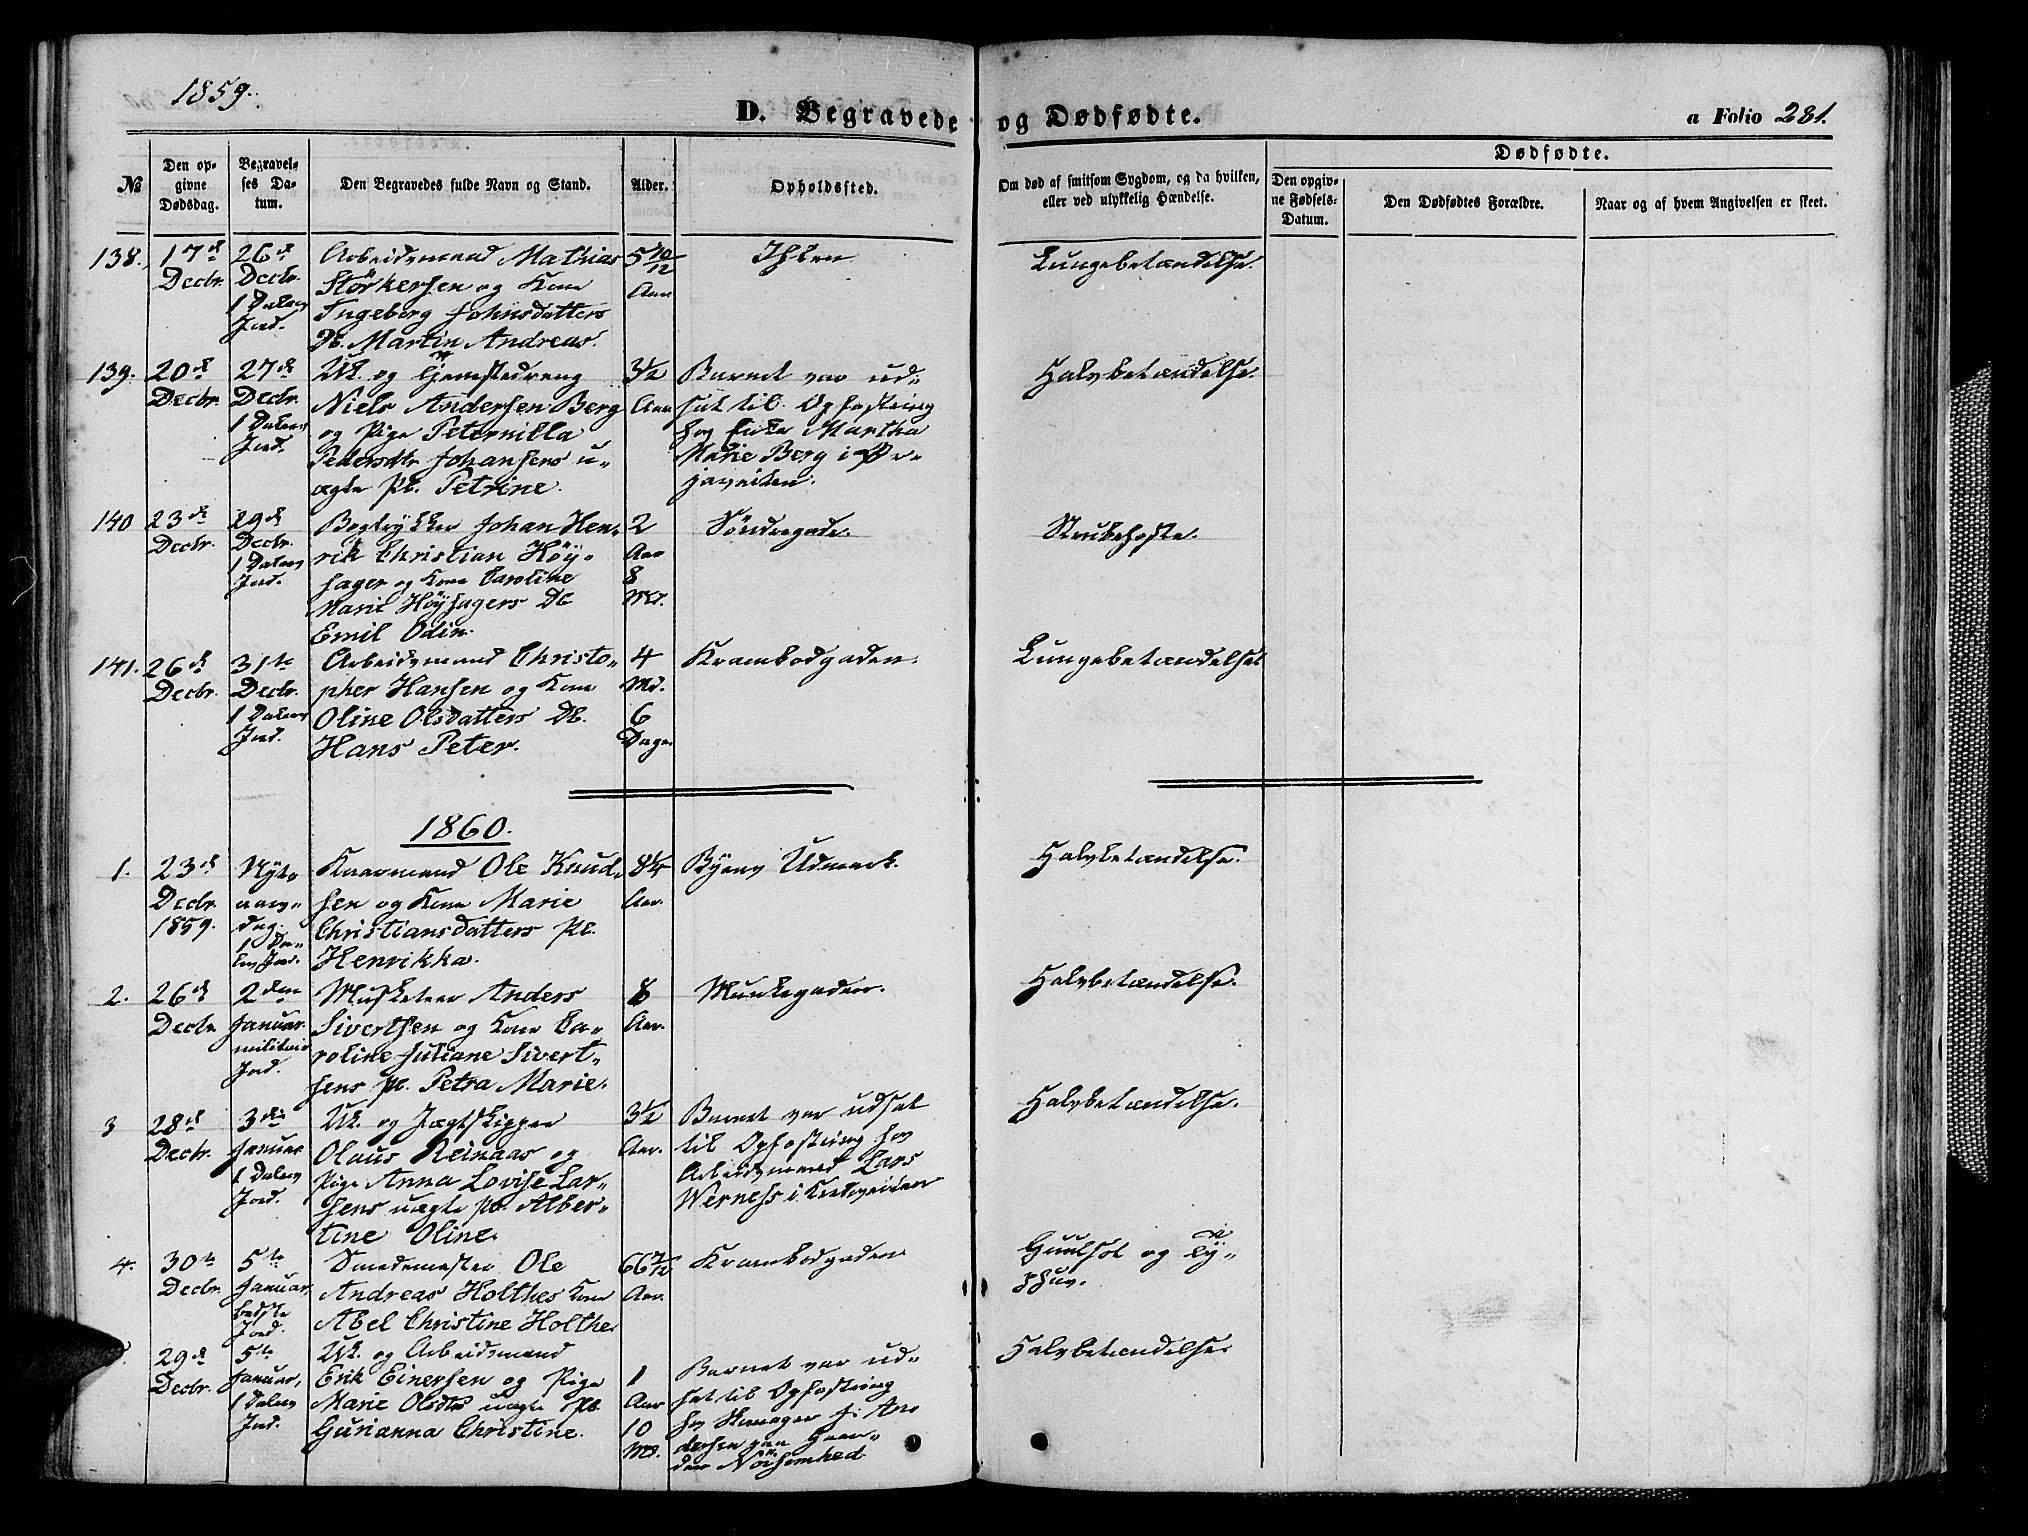 1859.
D. Begravede
og Dødfødte.
a Folio 281.
№
Den op-
givne
Dødsdag.
Begravel-
ses Da-
tum.
Den Begravedes fulde Navn og Stand.
Alder.
Opholdssted.
Om død af smitsom Sygdom, og da hvilken,
eller ved ulykkelig Hændelse.
Dødfødte.
Den opgiv-
ne Fødsels-
Datum.
Den Dødfødtes Forældre.
Naar og af hvem Angivelsen er skeet.
138.
17de
Decbr.
26de
Decbr.
1 Dalers
Jord.
Arbeidsmand Mathias
Störkersen og Kone
Ingeborg Johnsdatters
Db. Martin Andreas.
5 10/12
Aar
Ihlen
Lungebetændelse.
139.
20de
Decbr.
27de
Decbr.
1 Dalers
Jord.
Uk. og Tjenestedreng
Niels Andersen Berg
og Pige Peternilla
Pedersdtr Johansens u-
ægte Pb. Petrine.
3½
Aar
Barnet var ud-
sat til Opfostring
hos Enke Martha
Marie Berg i
Halsbetændelse.
140
23de
Decbr.
29de
Decbr.
1 Dalers
Jord.
Bogtrykker Johan Hen-
rik Christian Höy-
sager og Kone Caroline
Marie Höysagers Db
Emil Odin.
2
Aar
8
Md.
Söndregade.
Strubehoste.
141.
26de
Decbr.
31te
Decbr.
1 Dalers
Jord.
Arbeidsmand Christo-
pher Hansen og Kone
Oline Olsdatters Db.
Hans Peter.
4
Md.
6
Dage.
Krambodgaden.
Lungebetændelse
1860.
1.
23de
Decbr.
1859.
Nyt-
aars-
dag.
1 Da-
lers Jord.
Knud-
sen og Kone Marie
Christiansdatters Pb.
Henrikka.
8¼
Aar.
Byens Udmark.
Halsbetændelse.
2.
26de
Decbr
2den
Januar.
militair
Jord.
Musketeer Anders
Sivertsen og Kone Ca-
roline Juliane Sivert-
sens Pb. Petra Marie.
8
Aar.
Munkegaden.
Halsbetændelse.
3
28de
Decbr.
3die
Januar
1 Dalers
Jord.
Uk. og Jægtskipper
Olaus Reinaas og
Pige Anna Lovise Lar-
sens uægte Pb. Alber-
tine Oline.
3½
Aar.
Barnet var udsat
til Opfostring hos
Arbeidsmand Lars
Werness i
Halsbetændelse.
4.
30te
Decbr.
5te
Januar.
bedste
Jord.
Smedemester Ole
Andreas Holthes Kone
Abel Christine Holthe.
Aar.
Krambodgaden
Guulsot og Ty-
phus.
29de
Decbr.
5te
Januar,
1 Dalers
Jord.
Uk. og Arbeidsmand
Erik Einersen og Pige
Marie Olsdtrs uægte Pb.
Gurianna Christine.
1
Aar
10
Md.
Barnet var ud-
sat til Opfostring
hos
dersen paa Gaar-
den Nöisomhed
Halsbetændelse.